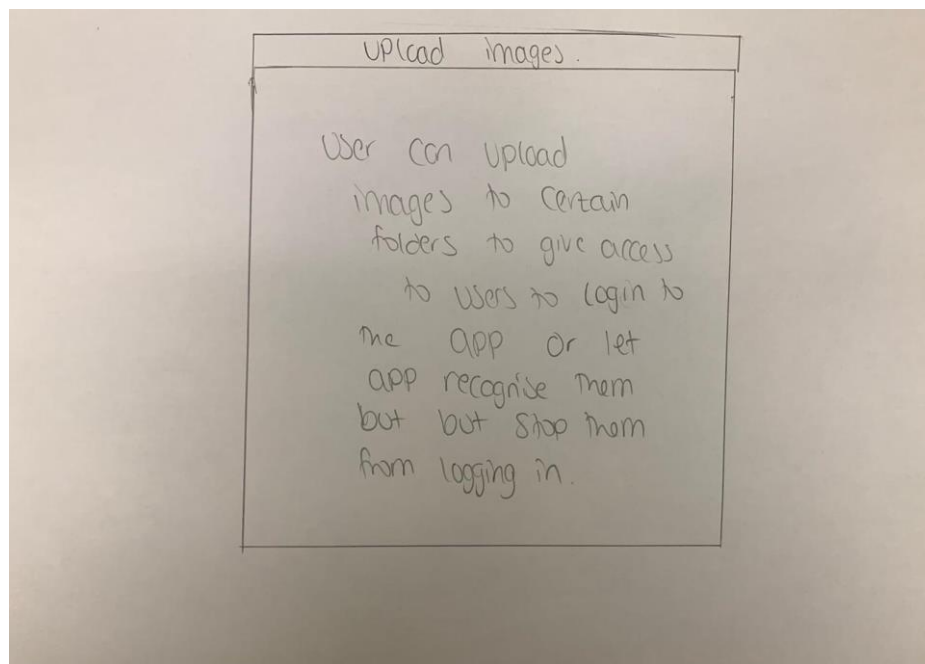 Upload images.
User can upload
images to certain
folders to give access
to users to login to
the app or let
app recognise them
but but stop them
from logging in.